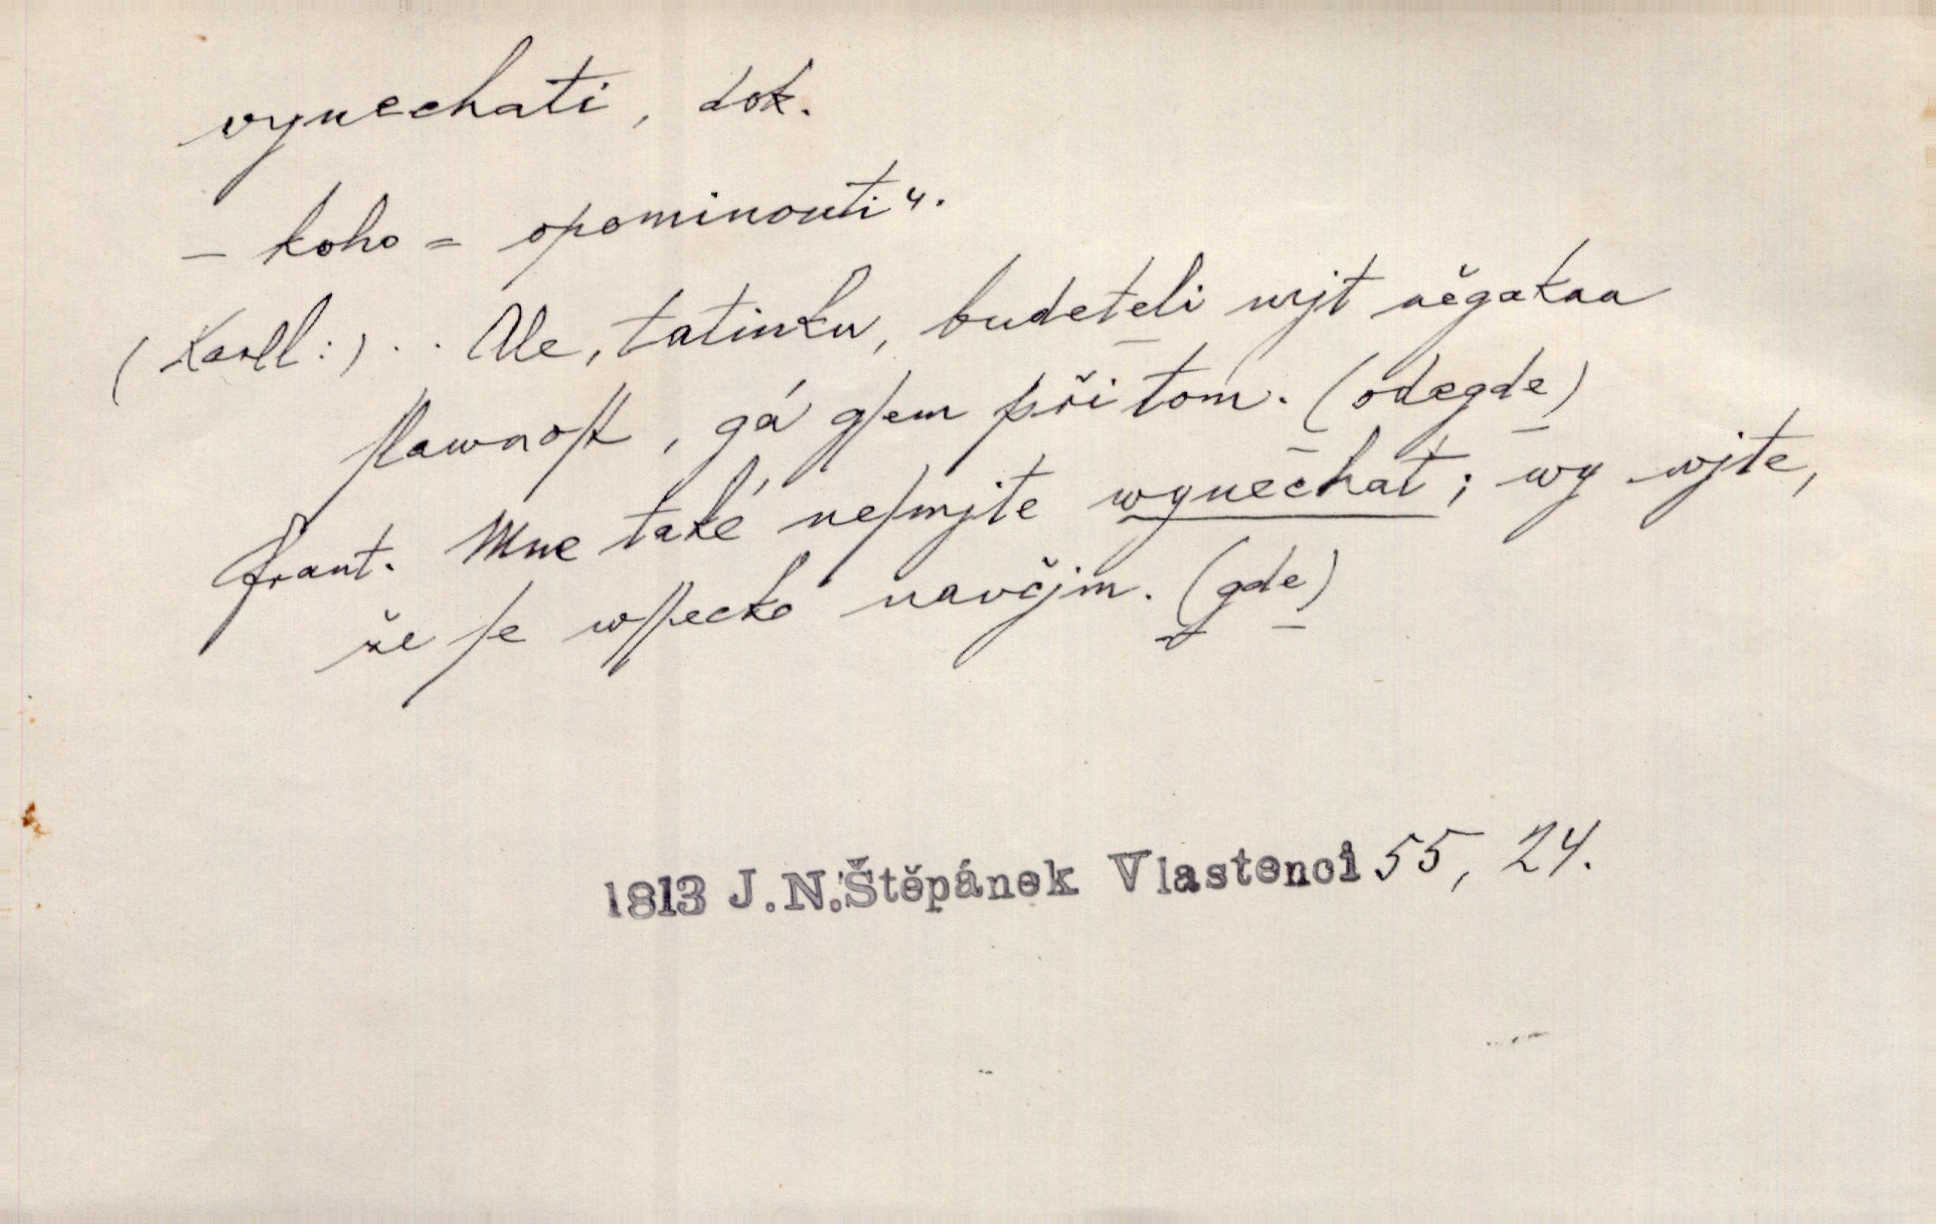 vynechati, dok.
– koho = opominouti“.
(Karll:) .. Ale, tatinku, budeteli mjt něgakau
ſlawnoſt, gá gſem při tom. (odegde)
Frant. Mne také neſmjte wynechat; wy wjte,
že ſe wſſecko navčjm. (gde)
1813 J.N.Štěpánek Vlastenci 55, 24.